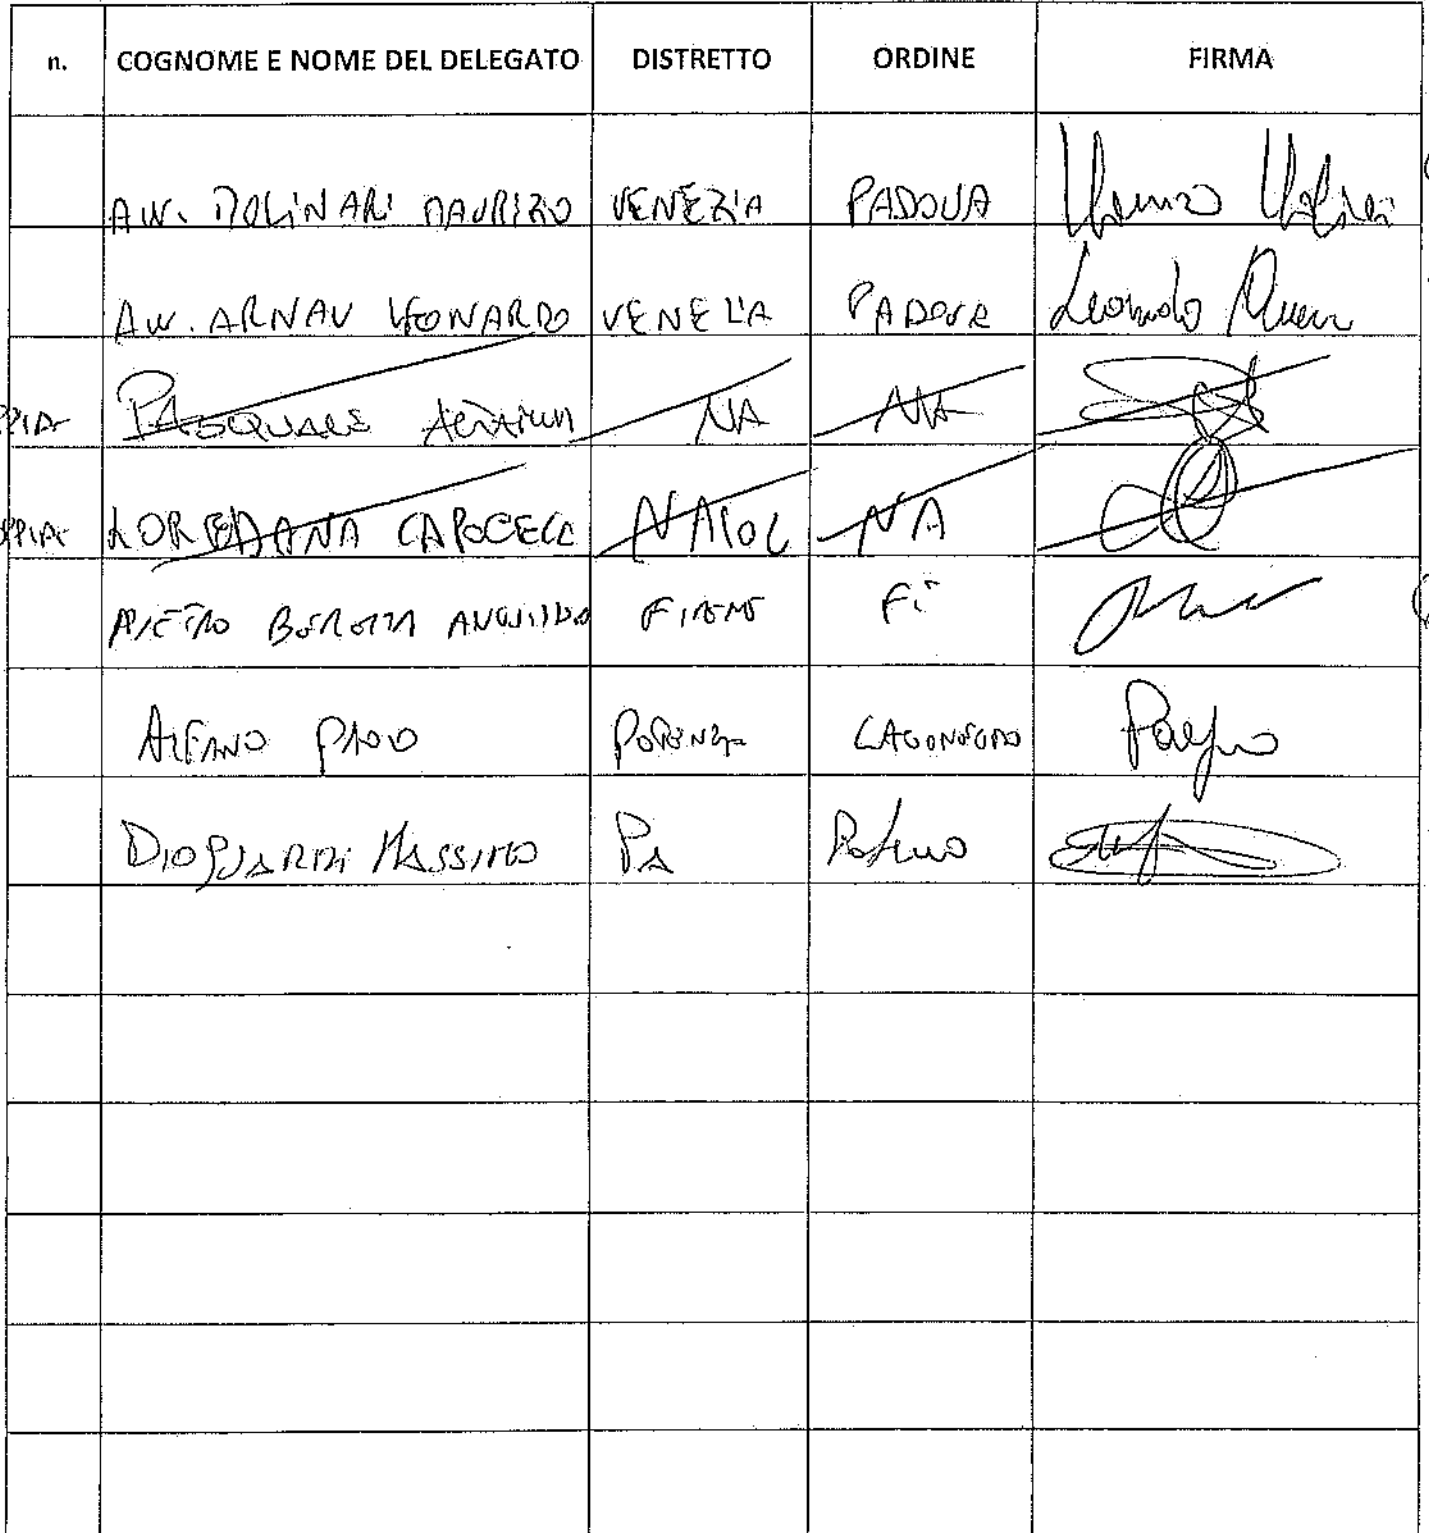 n. COGNOME E NOME DEL DELEGATO DISTRETTO ORDINE FIRMA
AVV. MOLINARI MAURIZIO VENEZIA PADOVA
AVV. ARNAU LEONARDO VENEZIA PADOVA Leonardo
PASQUALE NA NA
LOREDANA CAPOCELL NAPOL NA
PIETRO BERETTA FIRENZE FI
ALFANO PAOLO POTENZA LAGONEGRO
DIOGUARDI MASSIMO PA Palermo